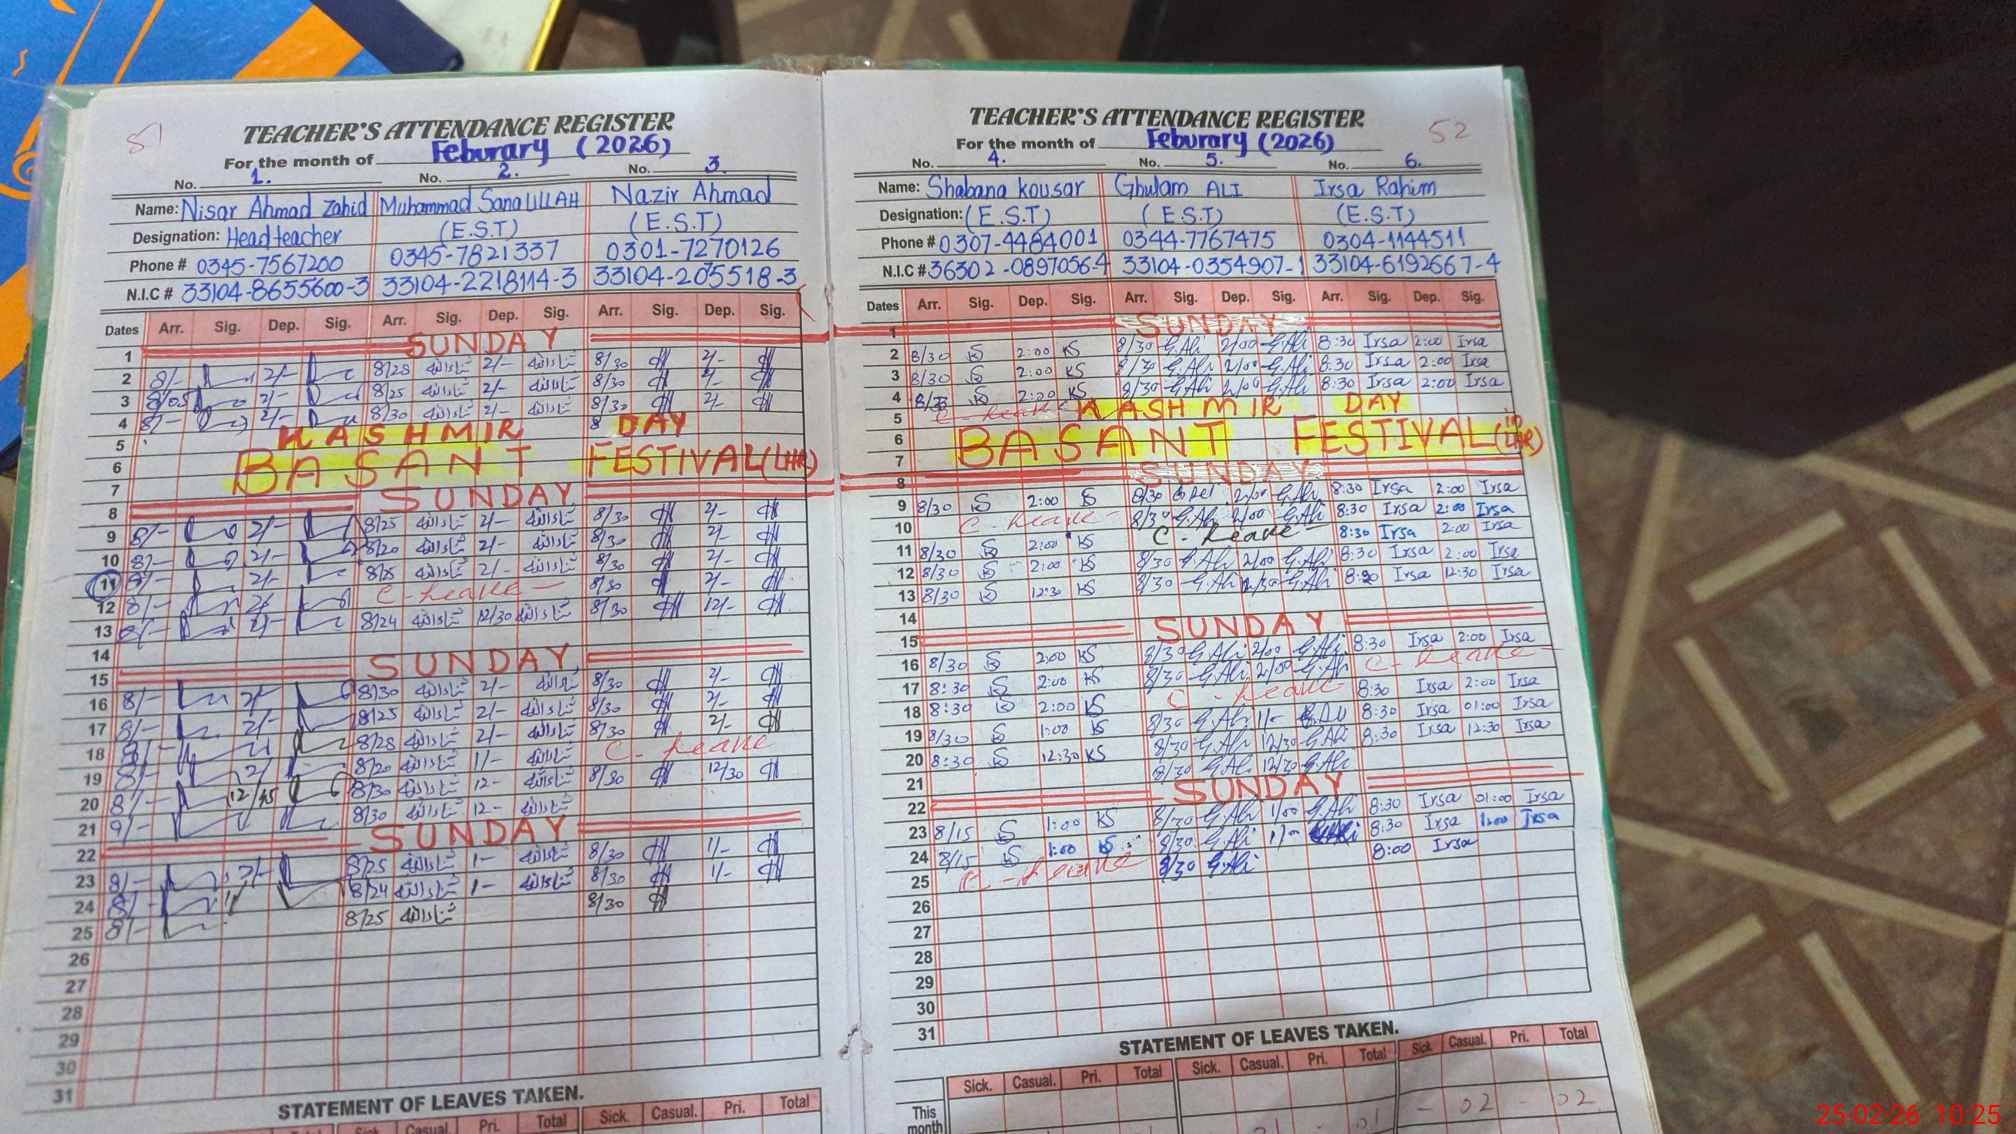 51
TEACHER'S ATTENDANCE REGISTER
For the month of Feburary (2026)
No. 1. No. 2. No. 3.
Name: Nisar Ahmad Zahid Muhammad SanaULLAH Nazir Ahmad
Designation: Headteacher (E.S.T) (E.S.T)
Phone # 0345-7567200 0345-7821337 0301-7270126
N.I.C # 33104-8655600-3 33104-2218114-3 33104-205518-3
Dates Arr. Sig. Dep. Sig. Arr. Sig. Dep. Sig. Arr. Sig. Dep. Sig.
1 SUNDAY
2 8/- 2/- 8/28 ثناءاللہ 2/- ثناءاللہ 8/30 2/-
3 8/05 2/- 8/25 ثناءاللہ 2/- ثناءاللہ 8/30 2/-
4 8/- 2/- 8/30 ثناءاللہ 2/- ثناءاللہ 8/30 2/-
5 KASHMIR DAY
6 BASANT FESTIVAL (LHR)
7
8 SUNDAY
9 8/- 2/- 8/25 ثناءاللہ 2/- ثناءاللہ 8/30 2/-
10 8/- 2/- 8/20 ثناءاللہ 2/- ثناءاللہ 8/30 2/-
11 8/- 2/- 8/25 ثناءاللہ 2/- ثناءاللہ 8/30 2/-
12 8/- 2/- C-Leave 8/30 2/-
13 8/- 2/- 8/24 ثناءاللہ 12/30 ثناءاللہ 8/30 12/-
14
15 SUNDAY
16 8/- 2/- 8/30 ثناءاللہ 2/- ثناءاللہ 8/30 2/-
17 8/- 2/- 8/25 ثناءاللہ 2/- ثناءاللہ 8/30 2/-
18 8/- 8/28 ثناءاللہ 2/- ثناءاللہ 8/30 2/-
19 8/- 2/ 8/20 ثناءاللہ 1/- ثناءاللہ C-Leave
20 8/- 12/45 8/30 ثناءاللہ 12- ثناءاللہ 8/30 12/30
21 9/- 8/30 ثناءاللہ 12- ثناءاللہ
22 SUNDAY
23 8/- 8/25 ثناءاللہ 1- ثناءاللہ 8/30 1/-
24 8/- 8/24 ثناءاللہ 1- ثناءاللہ 8/30 1/-
25 8/- 8/25 ثناءاللہ 8/30
26
27
28
29
30
31
STATEMENT OF LEAVES TAKEN.
Total Sick. Casual. Pri. Total Sick. Casual. Pri. Total
52
TEACHER'S ATTENDANCE REGISTER
For the month of Feburary (2026)
No. 4. No. 5. No. 6.
Name: Shabana kousar Ghulam ALI Irsa Rahim
Designation: (E.S.T) (E.S.T) (E.S.T)
Phone # 0307-4484001 0344-7767475 0304-1144511
N.I.C # 36302-0897056-4 33104-0354907-1 33104-6192667-4
Dates Arr. Sig. Dep. Sig. Arr. Sig. Dep. Sig. Arr. Sig. Dep. Sig.
1 SUNDAY
2 8/30 KS 2:00 KS 8/30 G.Ali 2/00 G.Ali 8:30 Irsa 2:00 Irsa
3 8/30 KS 2:00 KS 8/30 G.Ali 2/00 G.Ali 8:30 Irsa 2:00 Irsa
4 KS 2:00 KS 8/30 G.Ali 2/00 G.Ali 8:30 Irsa 2:00 Irsa
5 C-Leave KASHMIR DAY
6 BASANT FESTIVAL (in LHR)
7
8 SUNDAY
9 8/30 KS 2:00 KS 8/30 2/00 G.Ali 8:30 Irsa 2:00 Irsa
10 C-Leave 8/30 G.Ali 2/00 G.Ali 8:30 Irsa 2:00 Irsa
11 8/30 KS 2:00 KS C-Leave 8:30 Irsa 2:00 Irsa
12 8/30 KS 2:00 KS 8/30 G.Ali 2/00 G.Ali 8:30 Irsa 2:00 Irsa
13 8/30 KS 12:30 KS 8/30 G.Ali G.Ali Irsa 12:30 Irsa
14
15 SUNDAY
16 8/30 KS 2:00 KS 8/30 G.Ali 2/00 G.Ali 8:30 Irsa 2:00 Irsa
17 8:30 KS 2:00 KS 8/30 G.Ali 2/00 G.Ali C-Leave
18 8:30 KS 2:00 KS C-Leave 8:30 Irsa 2:00 Irsa
19 8/30 KS 1:00 KS 8/30 G.Ali 1/- 8:30 Irsa 01:00 Irsa
20 8:30 KS 12:30 KS 8/30 G.Ali 12/30 G.Ali 8:30 Irsa 12:30 Irsa
21 8/30 G.Ali 12/30 G.Ali
22 SUNDAY
23 8/15 KS 1:00 KS 8/30 G.Ali 1/00 G.Ali 8:30 Irsa 01:00 Irsa
24 8/15 KS 1:00 KS 8/30 G.Ali 1/00 8:30 Irsa 1:00 Irsa
25 C-Leave 8/30 G.Ali 8:00 Irsa
26
27
28
29
30
31
STATEMENT OF LEAVES TAKEN.
Sick. Casual. Pri. Total Sick. Casual. Pri. Total Sick Casual. Pri. Total
This month - 02 - 02
25-02-26 10:25